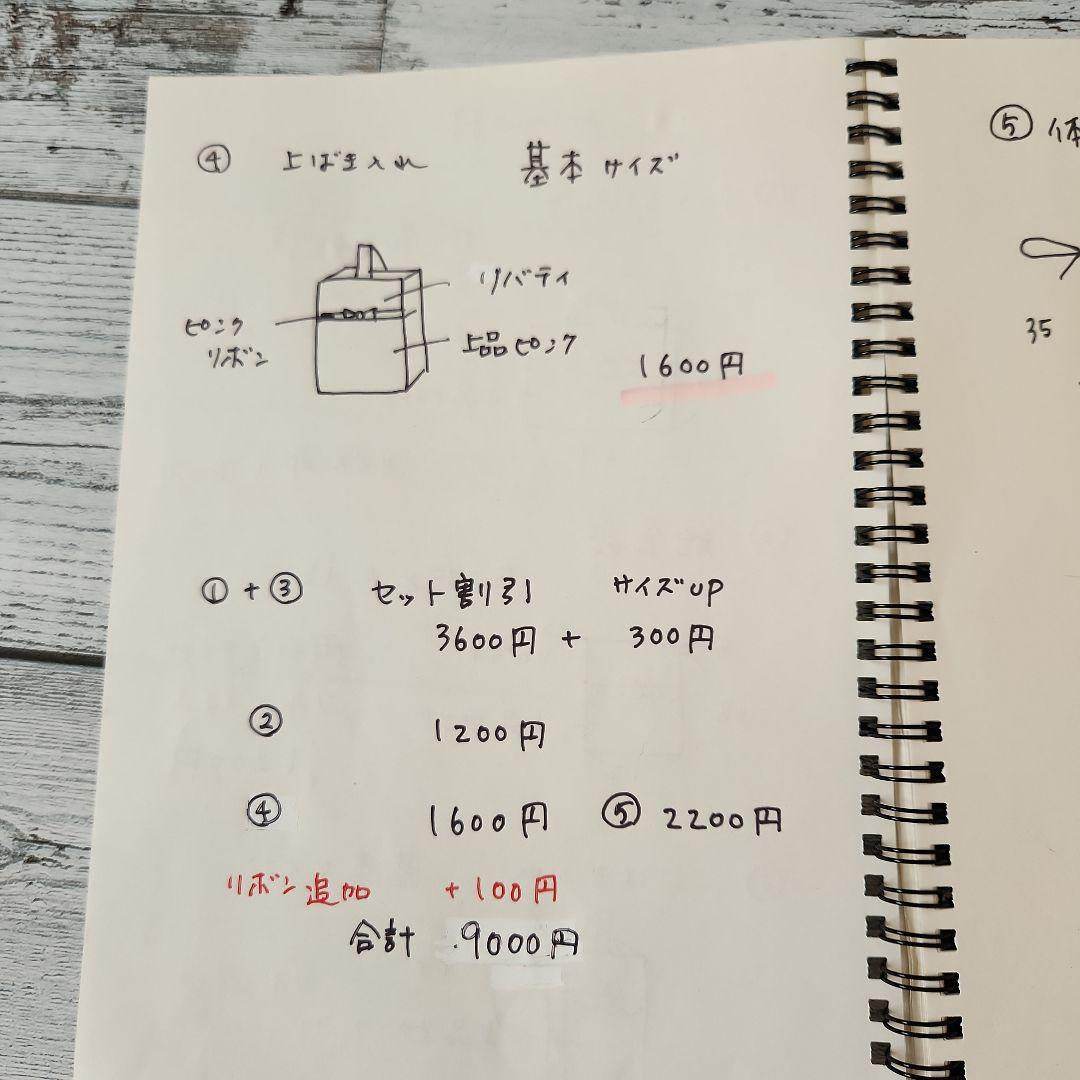 ④ 上ばき入れ 基本サイズ
リバティ
ピンク
リボン
上品ピンク
1600円
①+③ セット割り引 サイズUP
3600円 + 300円
② 1200円
④ 1600円 ⑤ 2200円
リボン追加 +100円
合計 9000円
⑤ 体
35